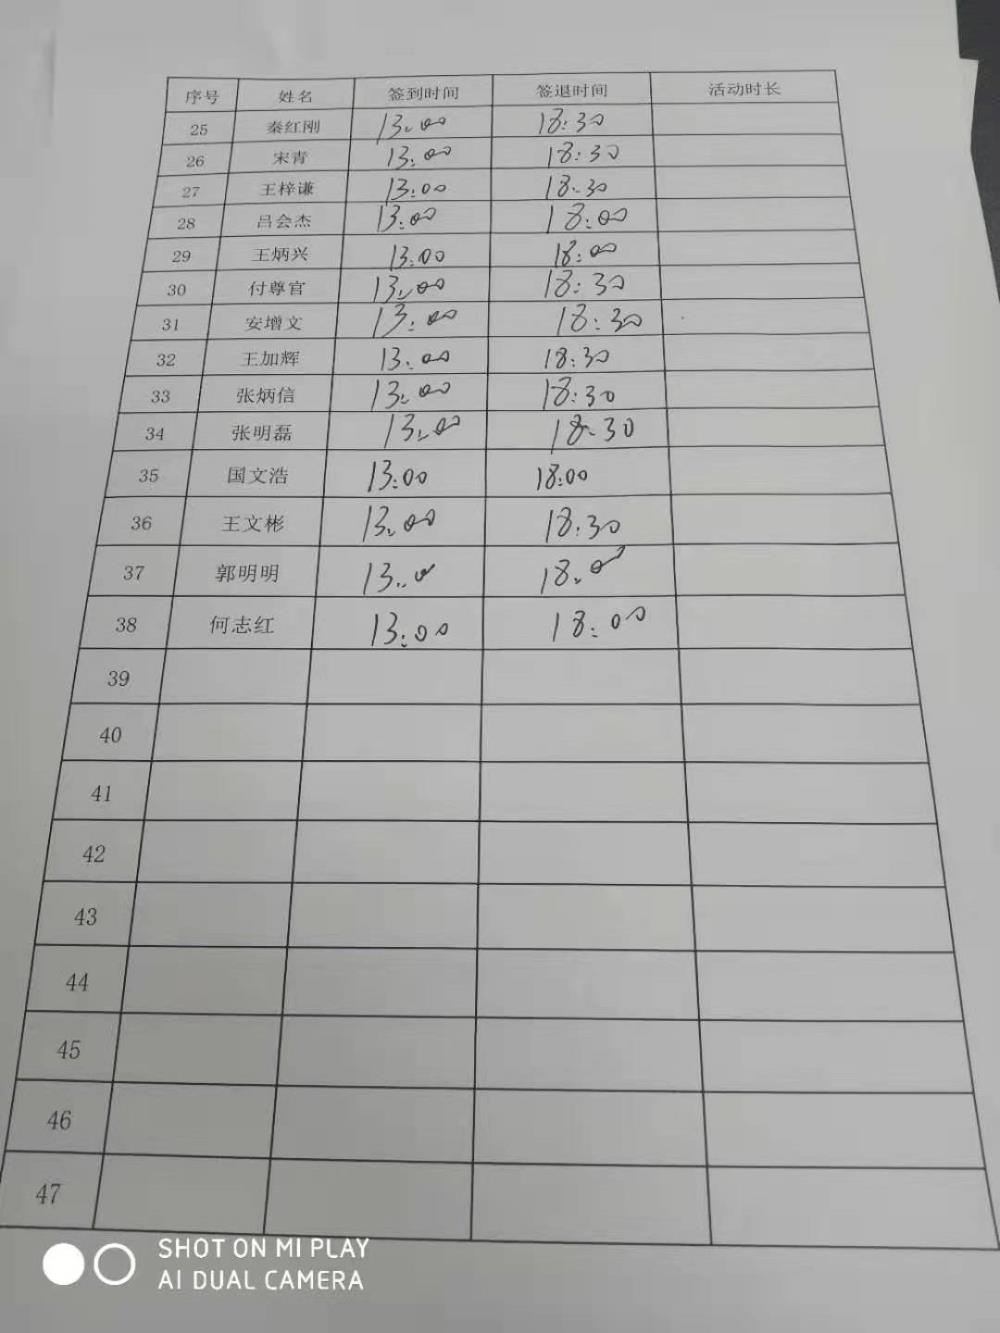 序号 姓名 签到时间 签退时间 活动时长
25 秦红刚 13:00 18:30
26 宋青 13:00 18:30
27 王梓谦 13:00 18:30
28 吕会杰 13:00 18:00
29 王炳兴 13:00 18:00
30 付尊官 13:00 18:30
31 安增文 13:00 18:30
32 王加辉 13:00 18:30
33 张炳信 13:00 18:30
34 张明磊 13:00 18:30
35 国文浩 13:00 18:00
36 王文彬 13:00 18:30
37 郭明明 13:00 18:00
38 何志红 13:00 18:00
39
40
41
42
43
44
45
46
47
SHOT ON MI PLAY
AI DUAL CAMERA